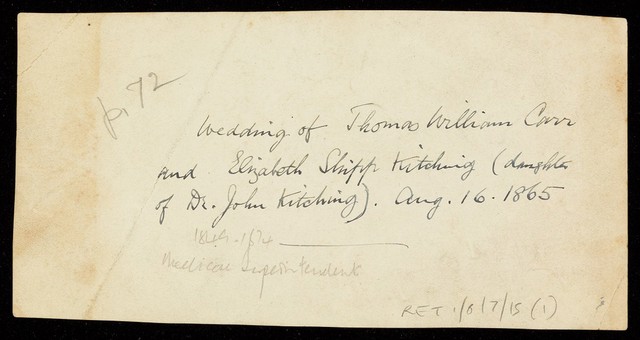 p. 72
Wedding of Thomas William Carr
and Elizabeth Shipp Kitching (daughter
of Dr. John Kitching). Aug. 16. 1865
1849-1874
Medical Superintendent
RET 1/8/7/15 (1)